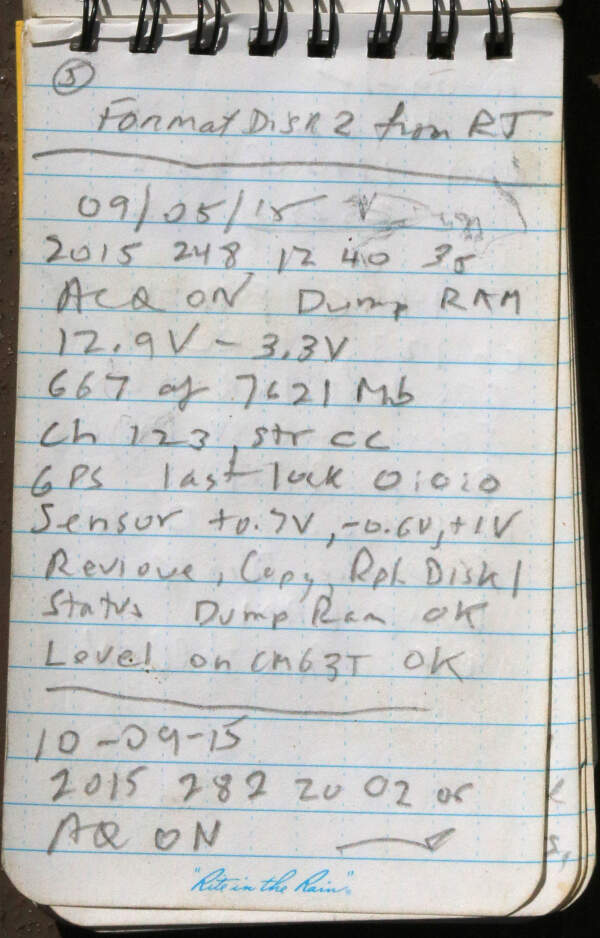 5
Format Disk 2 from RT
09/05/15
2015 248, 12 40 35
ACQ ON Dump RAM
12.9V - 3.3V
667 of 7621 Mb
Ch 123, str CC
GPS last lock 0:0:0
Sensor +0.7V, -0.6V, +1V
Reviove, Copy, Rpl. Disk 1
Status Dump Ram OK
Level on CM63T OK
10-09-15
2015 282 20 02 05
AQ ON
"Rite in the Rain"